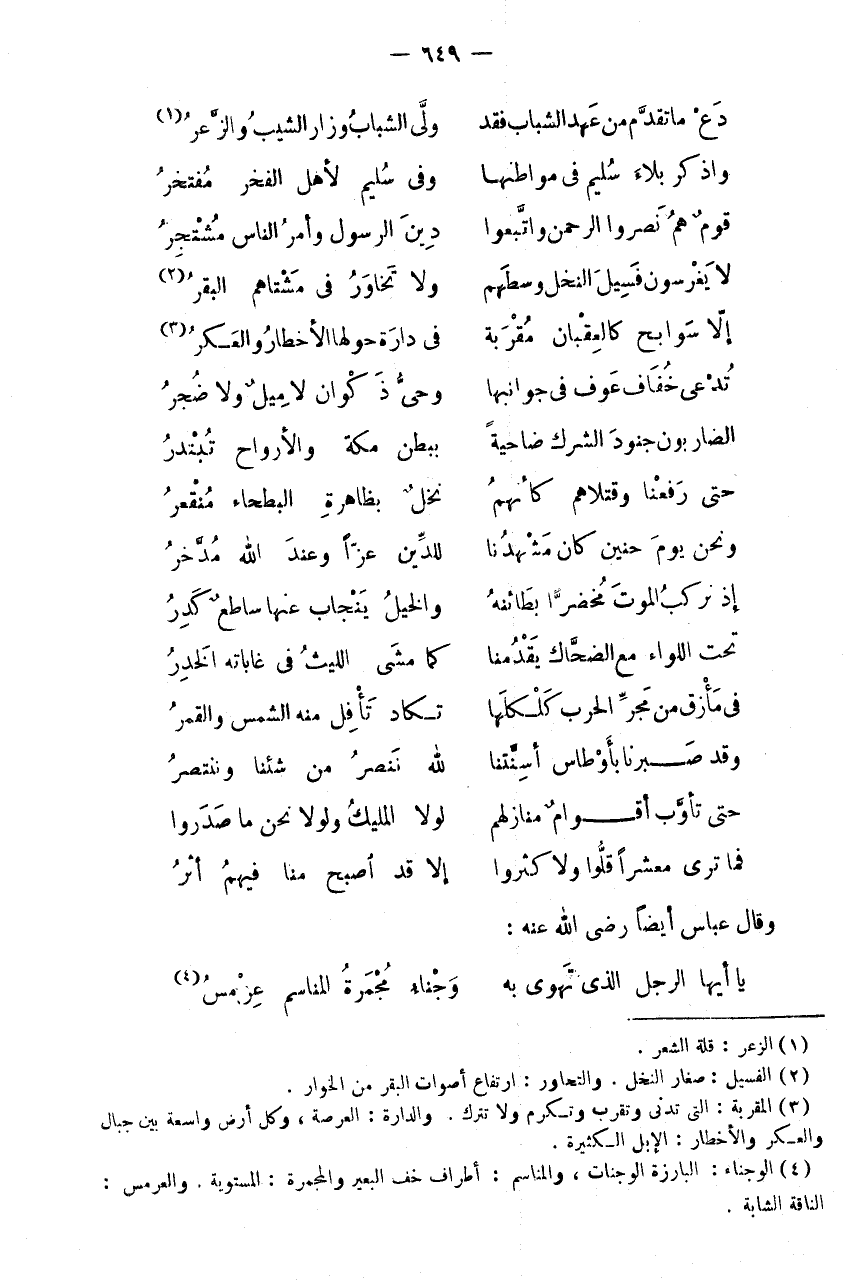 — ٦٤٩ —
دَعْ ما تقدَّم من عَهد الشباب فقد ولَّى الشبابُ وزار الشيبُ والزَّعرُ (١)
واذكر بلاءَ سُليم فى مواطنها وفى سُليم لأهل الفخر مُفتخرُ
قومٌ همُ نَصروا الرحمن واتَّبعوا دِينَ الرسول وأمرُ الناس مُشْتَجِرُ
لا يَغْرسون فَسِيلَ النخل وسطَهم ولا تَخاوَرُ فى مَشْتاهم البقرُ (٢)
إلّا سَوابح كالعِقْبان مُقْرَبة فى دارَة حولها الأخطارُ والعَكرُ (٣)
تُدْعى خُفَاف عَوف فى جوانبها وحىُّ ذَكْوان لا مِيلٌ ولا ضُجرُ
الضاربون جنودَ الشرك ضاحيةً ببطن مكة والأرواح تُبْتدرُ
حتى رَفعْنا وقتلاهم كأنهمُ نخلٌ بظاهرةِ البطحاء مُنْقعرُ
ونحن يومَ حنين كان مَشْهدُنا للدِّين عزّاً وعندَ الله مُدَّخرُ
إذ نركبُ الموتَ مُخضرًّا بطَائنهُ والخيلُ يَنْجاب عنها ساطعٌ كَدِرُ
تحت اللواء مع الضحَّاك يَقْدُمنا كما مشَى الليثُ فى غاباته الخَدِرُ
فى مَأْزِق من مَجرِّ الحرب كَلْكلَها تكاد تَأْفِل منه الشمس والقمرُ
وقد صَبرنا بأَوْطاس أسِنَّتنا لله نَنصرُ من شئنا وننتصرُ
حتى تأوَّب أقوامٌ منازلهم لولا المليكُ ولولا نحن ما صَدَروا
فما ترى معشراً قلُّوا ولا كثروا إلا قد أصبح منا فيهمُ أثرُ
وقال عباس أيضاً رضى الله عنه :
يا أيها الرجل الذى تَهوى به وَجْناء مُجْمَرةُ المناسم عِرْمسُ (٤)
(١) الزعر : قلة الشعر .
(٢) الفسيل : صغار النخل . والتحاور : ارتفاع أصوات البقر من الخوار .
(٣) المقربة : التى تدنى وتقرب وتكرم ولا تترك . والدارة : العرصة ، وكل أرض واسعة بين جبال
والعكر والأخطار : الإبل الكثيرة .
(٤) الوجناء : البارزة الوجنات ، والمناسم : أطراف خف البعير والمجمرة : المستوية . والعرمس :
الناقة الشابة .